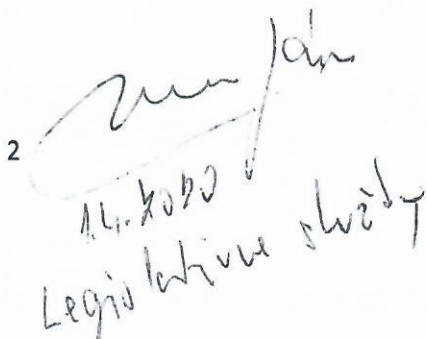 2
Ján
1.4.2020
Legislatívne služby